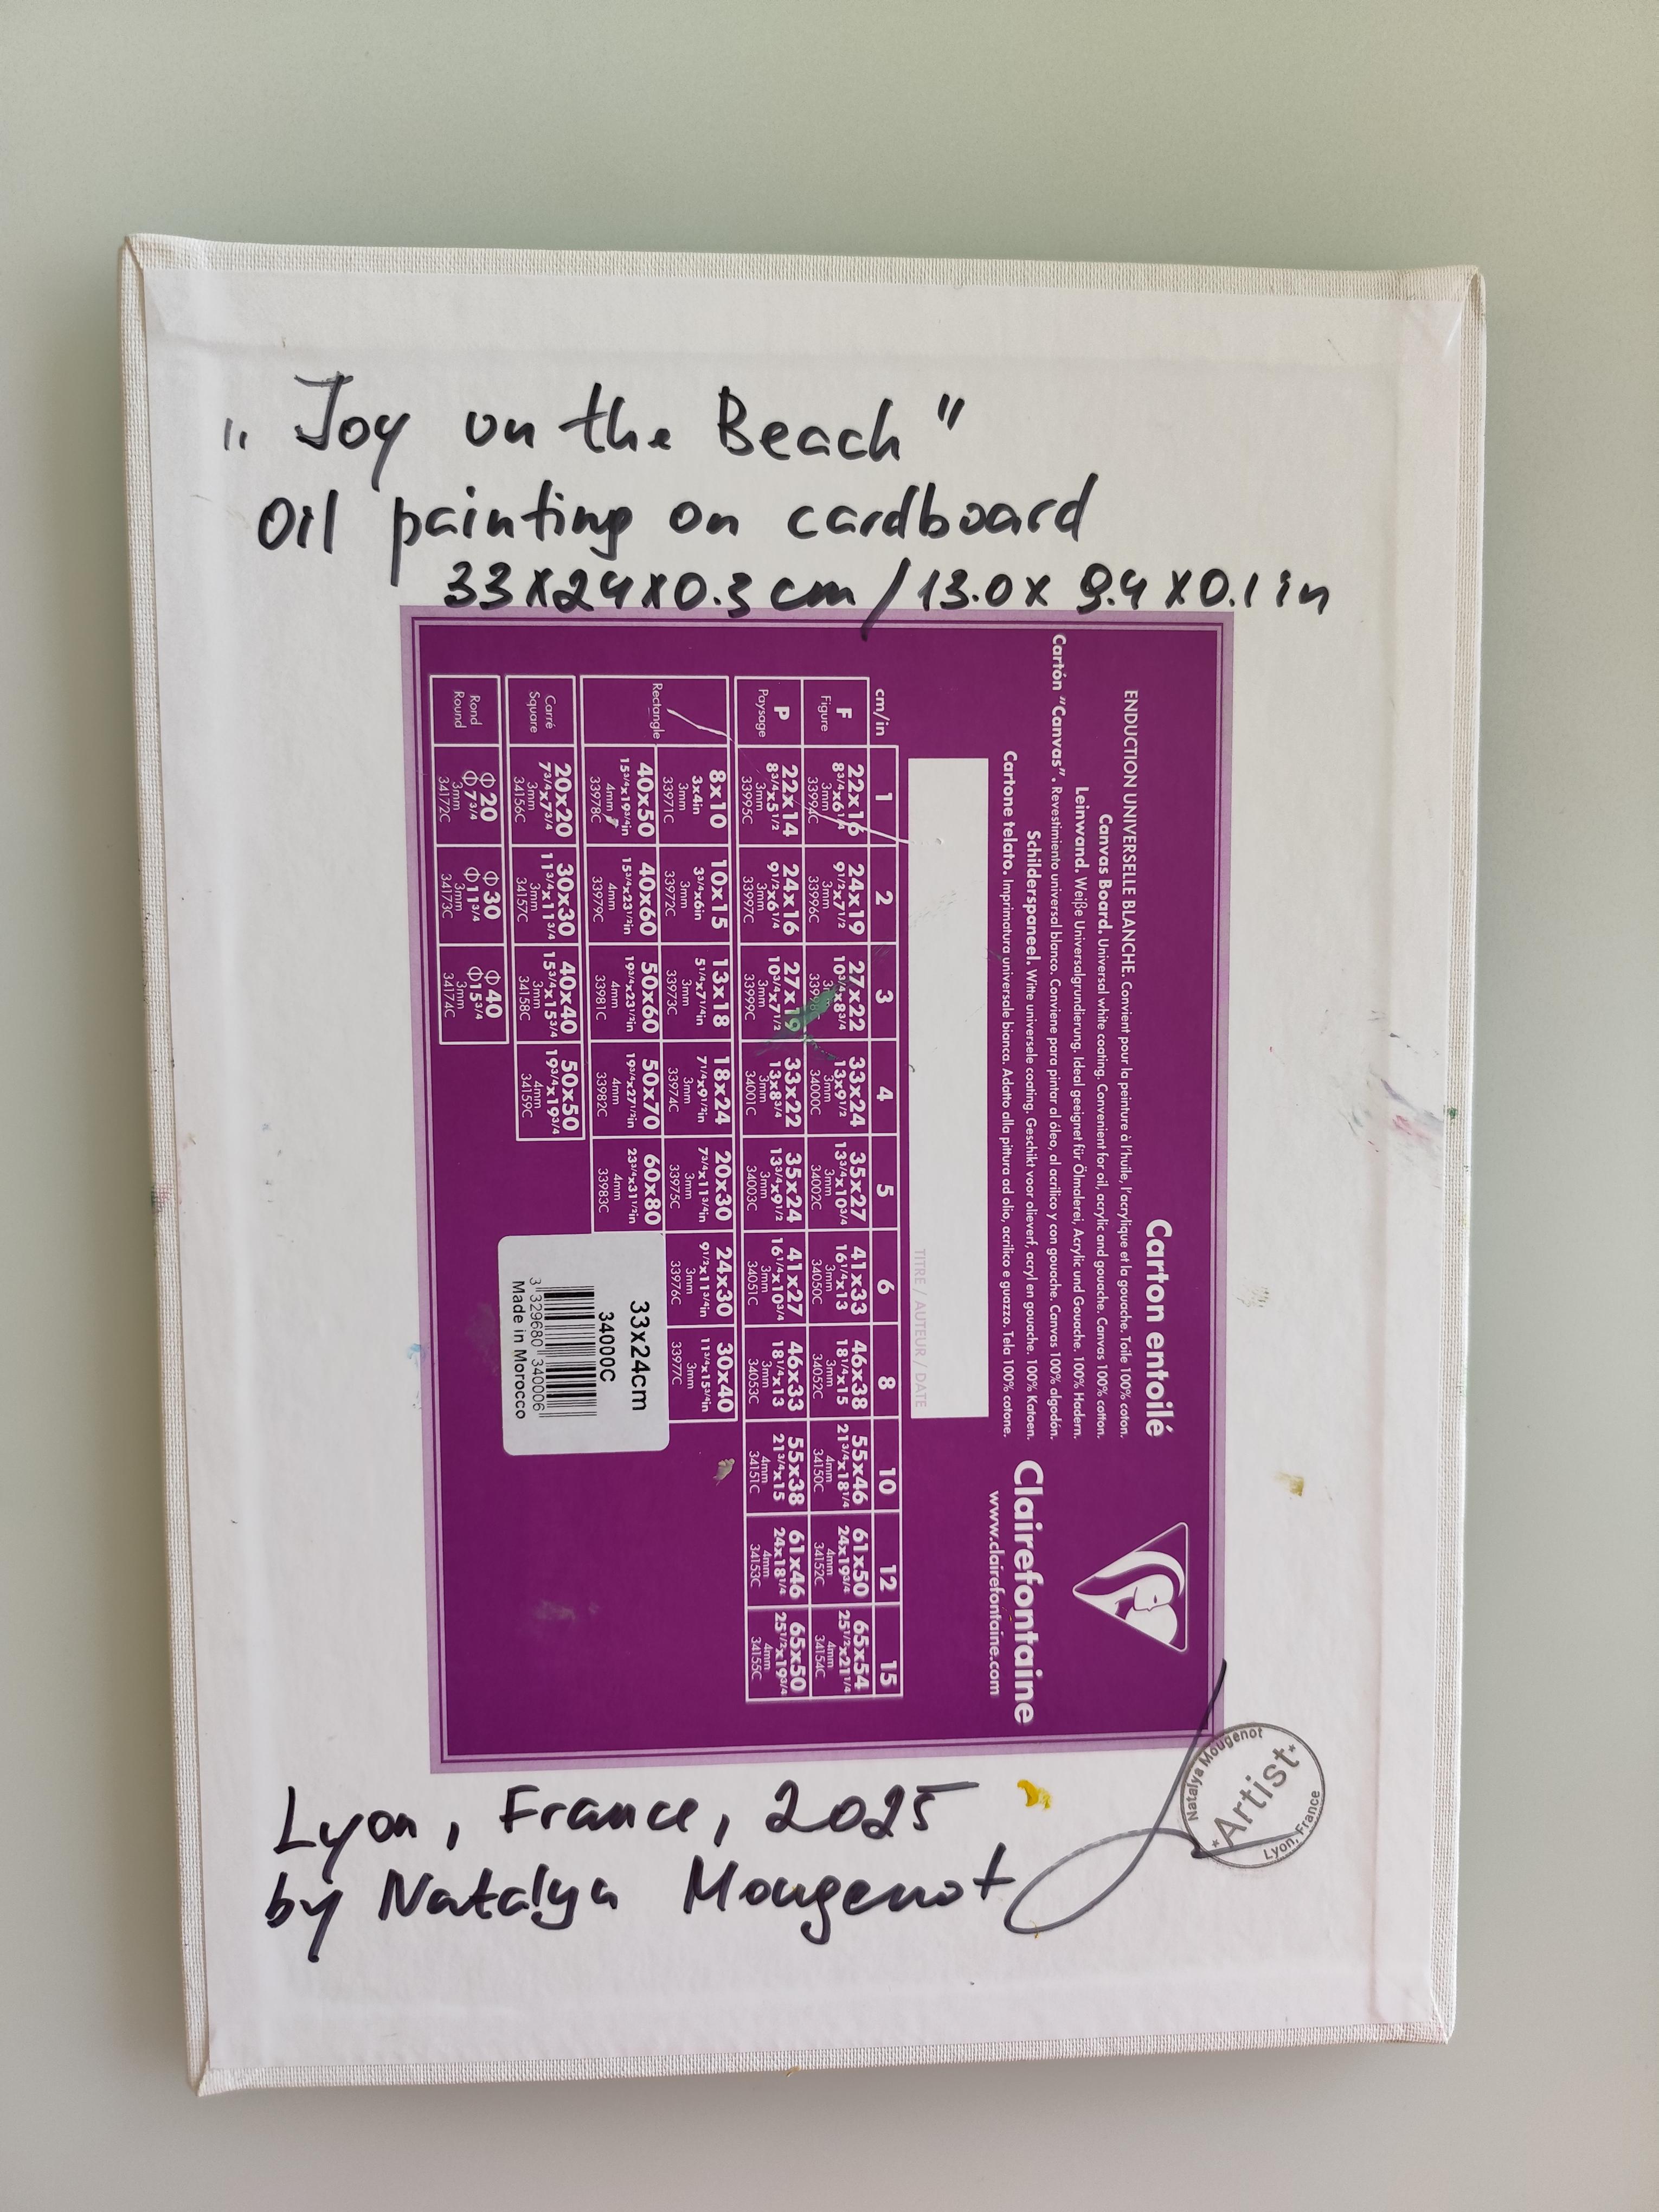 „Joy on the Beach"
Oil painting on cardboard
33x24x0.3 cm / 13.0 x 9.4 x 0.1 in
Carton entoilé
ENDUCTION UNIVERSELLE BLANCHE. Convient pour la peinture à l'huile, l'acrylique et la gouache. Toile 100% coton.
Canvas Board. Universal white coating. Convenient for oil, acrylic and gouache. Canvas 100% cotton.
Leinwand. Weiβe Universalgrundierung. Ideal geeignet für Ölmalerei, Acrylic und Gouache. 100% Hadern.
Cartón "Canvas". Revestimiento universal blanco. Conviene para pintar al óleo, al acrilico y con gouache. Canvas 100% algodón.
Schilderspaneel. Witte universele coating. Geschikt voor olieverf, acryl en gouache. 100% Katoen.
Cartone telato. Imprimatura universale bianca. Adatto alla pittura ad olio, acrilico e guazzo. Tela 100% cotone.
Clairefontaine
www.clairefontaine.com
TITRE / AUTEUR / DATE
cm/in 1 2 3 4 5 6 8 10 12 15
F 22x16 24x19 27x22 33x24 35x27 41x33 46x38 55x46 61x50 65x54
Figure 8 3/4x6 1/4 9 1/2x7 1/2 10 3/4x8 3/4 13x9 1/2 13 3/4x10 3/4 16 1/4x13 18 1/4x15 21 3/4x18 1/4 24x19 3/4 25 1/2x21 1/4
3mm 3mm 3mm 3mm 3mm 3mm 3mm 4mm 4mm 4mm
33994C 33996C 33998C 34000C 34002C 34050C 34052C 34150C 34152C 34154C
P 22x14 24x16 27x19 33x22 35x24 41x27 46x33 55x38 61x46 65x50
Paysage 8 3/4x5 1/2 9 1/2x6 1/4 10 3/4x7 1/2 13x8 3/4 13 3/4x9 1/2 16 1/4x10 3/4 18 1/4x13 21 3/4x15 24x18 1/4 25 1/2x19 3/4
3mm 3mm 3mm 3mm 3mm 3mm 3mm 4mm 4mm 4mm
33995C 33997C 33999C 34001C 34003C 34051C 34053C 34151C 34153C 34155C
Rectangle 8x10 10x15 13x18 18x24 20x30 24x30 30x40
3x4in 3 3/4x6in 5 1/4x7 1/4in 7 1/4x9 1/2in 7 3/4x11 3/4in 9 1/2x11 3/4in 11 3/4x15 3/4in
3mm 3mm 3mm 3mm 3mm 3mm 3mm
33971C 33972C 33973C 33974C 33975C 33976C 33977C
40x50 40x60 50x60 50x70 60x80
15 3/4x19 3/4in 15 3/4x23 1/2in 19 3/4x23 1/2in 19 3/4x27 1/2in 23 3/4x31 1/2in
4mm 4mm 4mm 4mm 4mm
33978C 33979C 33981C 33982C 33983C
Carré 20x20 30x30 40x40 50x50
Square 7 3/4x7 3/4 11 3/4x11 3/4 15 3/4x15 3/4 19 3/4x19 3/4
3mm 3mm 3mm 4mm
34156C 34157C 34158C 34159C
Rond Φ 20 Φ 30 Φ 40
Round Φ 7 3/4 Φ 11 3/4 Φ 15 3/4
3mm 3mm 3mm
34172C 34173C 34174C
33x24cm
34000C
3 329680 340006
Made in Morocco
Natalya Mougenot
*Artist*
Lyon, France
Lyon, France, 2025
by Natalya Mougenot